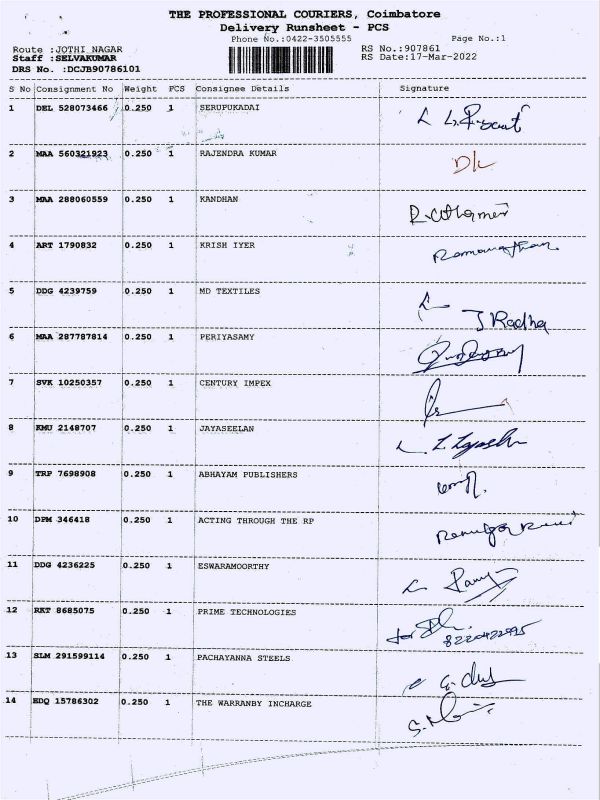 THE PROFESSIONAL COURIERS, Coimbatore
Delivery Runsheet - PCS
Phone No.:0422-3505555 Page No.:1
Route :JOTHI NAGAR RS No.:907861
Staff :SELVAKUMAR RS Date:17-Mar-2022
DRS No. :DCJB90786101
S No Consignment No Weight PCS Consignee Details Signature
1 DEL 528073466 0.250 1 SERUPUKADAI
2 MAA 560321923 0.250 1 RAJENDRA KUMAR
3 MAA 288060559 0.250 1 KANDHAN
4 ART 1790832 0.250 1 KRISH IYER
5 DDG 4239759 0.250 1 MD TEXTILES
J Radha
6 MAA 287787814 0.250 1 PERIYASAMY
7 SVK 10250357 0.250 1 CENTURY IMPEX
8 KMU 2148707 0.250 1 JAYASEELAN
9 TRP 7698908 0.250 1 ABHAYAM PUBLISHERS
10 DPM 346418 0.250 1 ACTING THROUGH THE RP
11 DDG 4236225 0.250 1 ESWARAMOORTHY
12 RKT 8685075 0.250 1 PRIME TECHNOLOGIES
13 SLM 291599114 0.250 1 PACHAYANNA STEELS
14 EDQ 15786302 0.250 1 THE WARRANBY INCHARGE